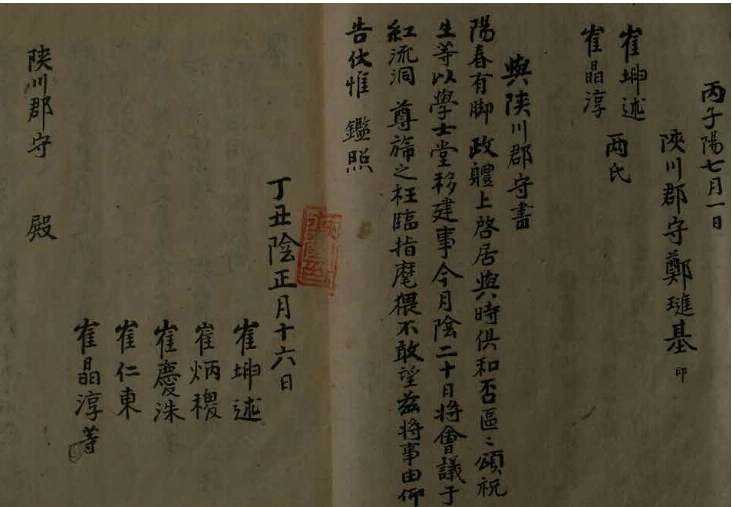 丙子陽七月一日
陜川郡守鄭璡基 印
崔坤述
崔晶淳 兩氏
與陜川郡守書
陽春有脚 政軆上啓居與時俱和否區〻頌祝
生等以學士堂移建事今月陰二十日將會議于
紅流洞 尊旆之枉臨指麾猥不敢望玆將事由仰
告伏惟 鑑照
丁丑陰正月十六日
崔坤述
崔炳稷
崔慶洙
崔仁東
崔晶淳 等
陜川郡守 殿